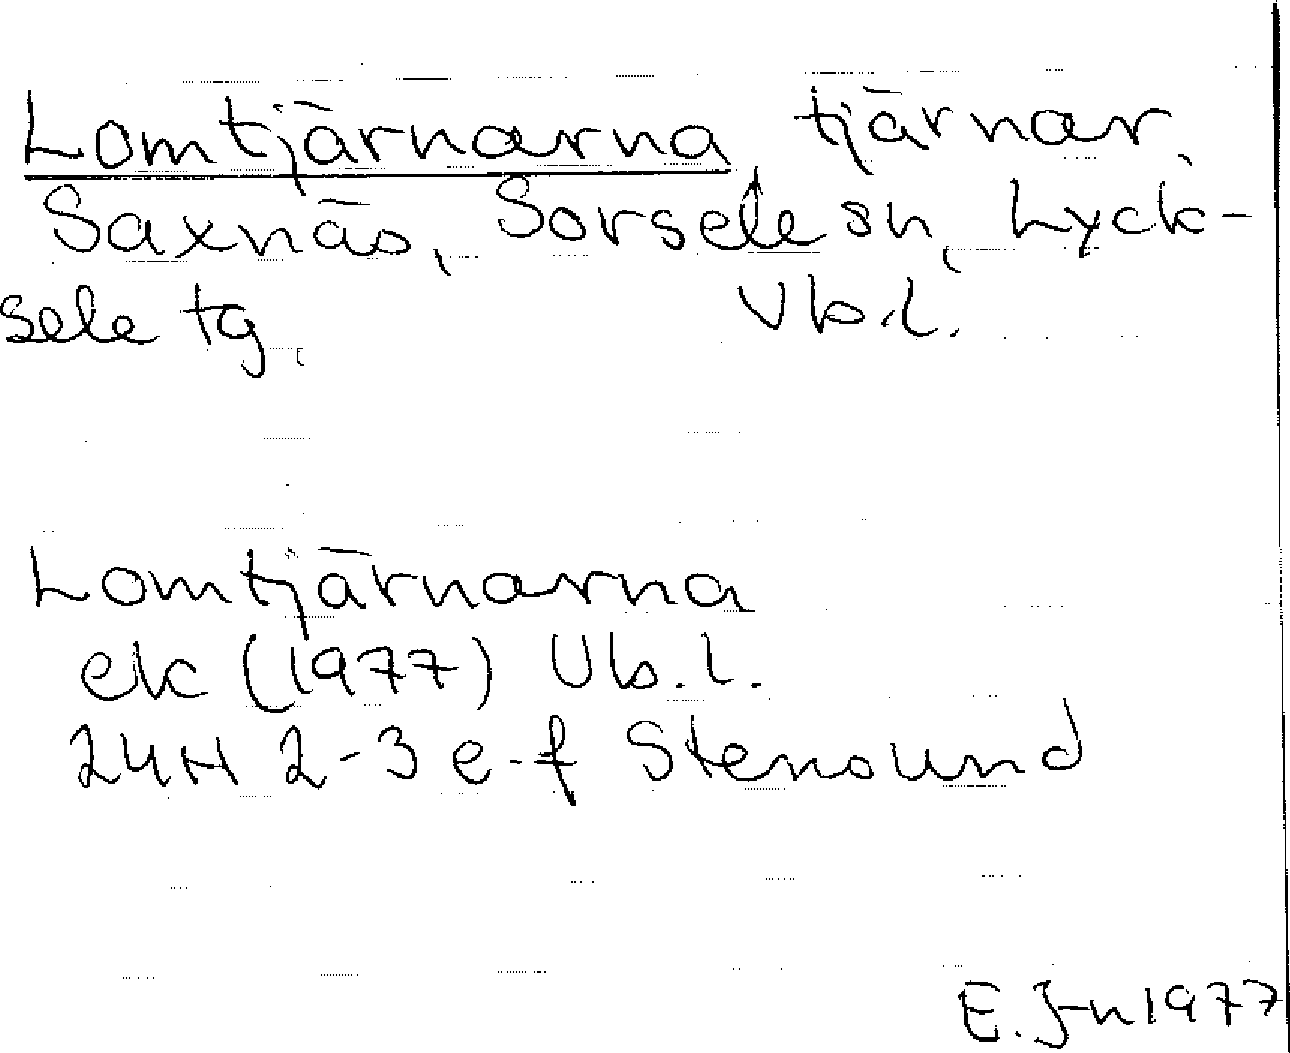 Lomtjärnarna, tjärnar,
Saxnäs, Sorsele sn, Lyck-
sele tg, Vb.l.
Lomtjärnarna
ek (1977) Vb.l.
24H 2-3 e-f Stensund
E. J-n 1977